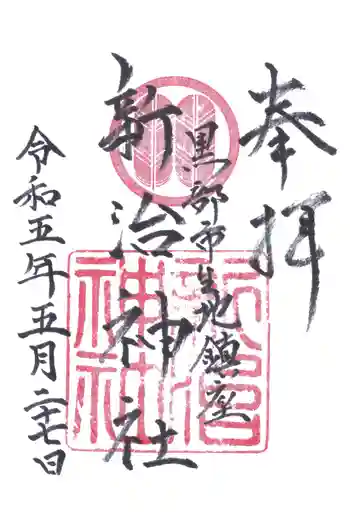 奉拝
黒部市生地鎮座
新治神社
令和五年五月二十七日
新治神社